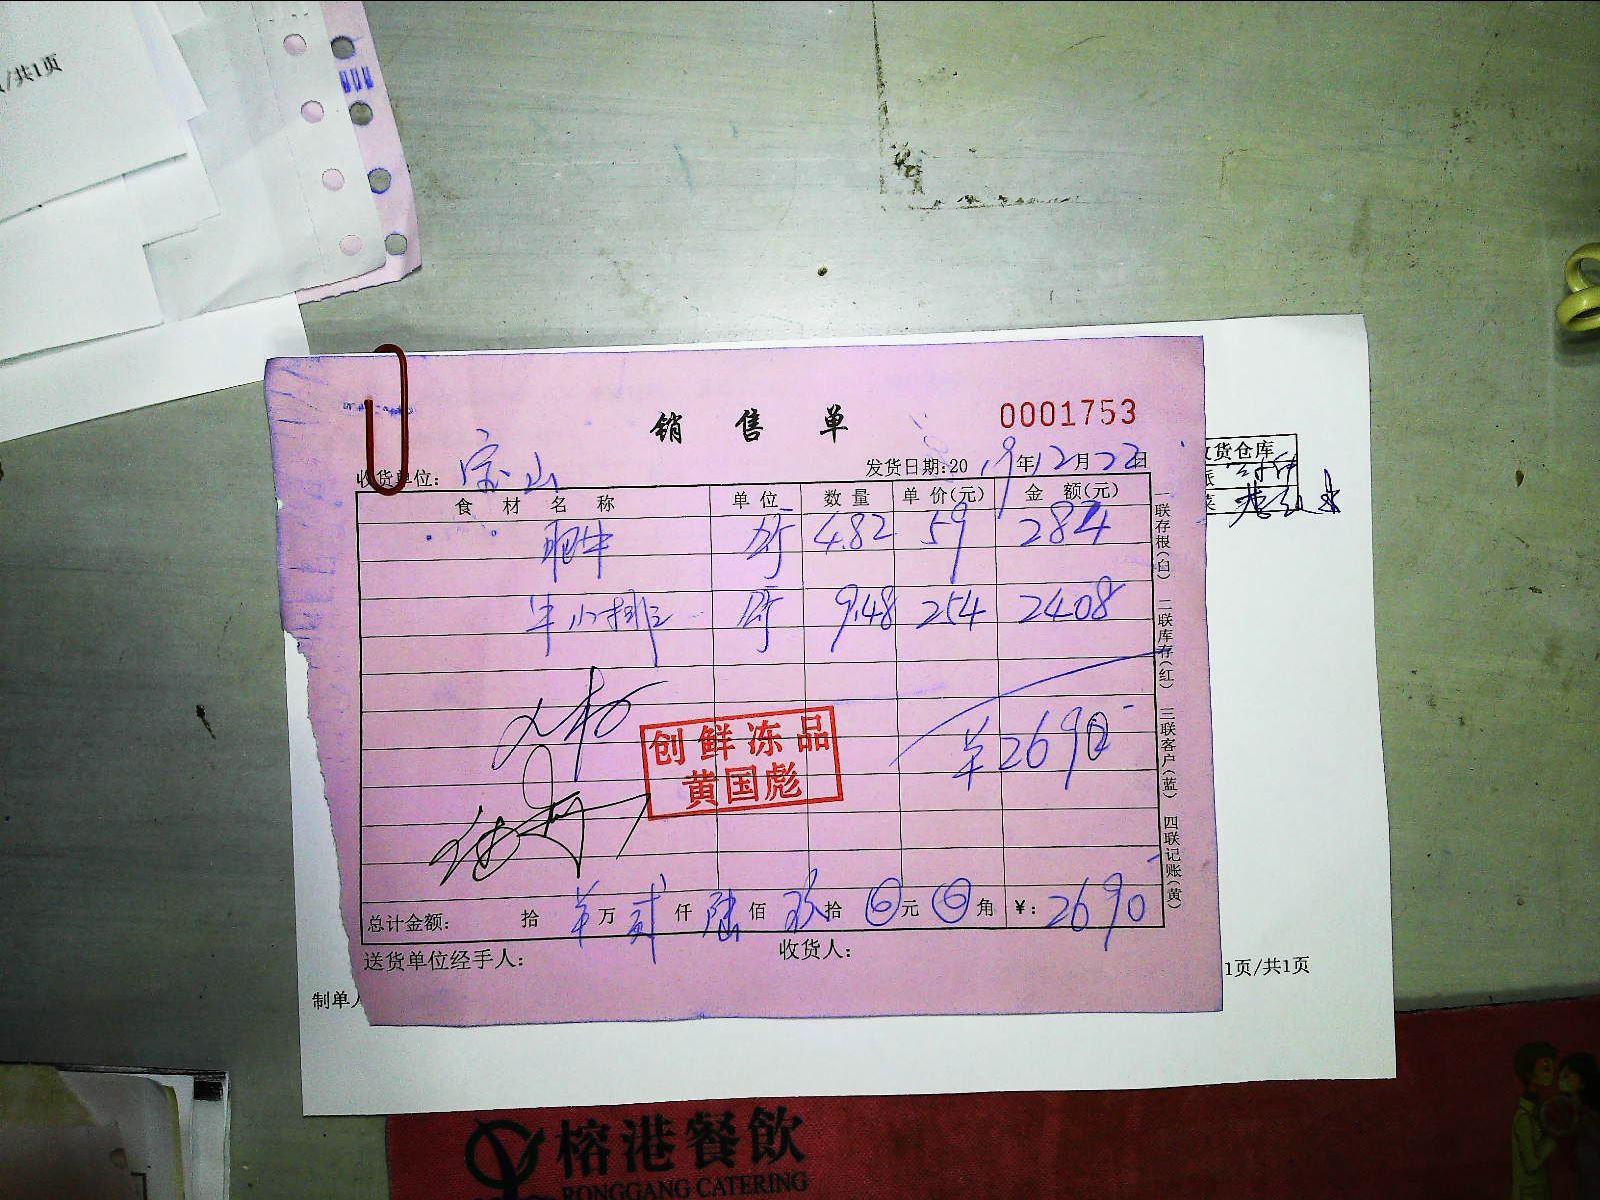 /共1页
销售单
0001753
收货单位: 宝山
发货日期:2019年12月22日
食材名称 单位 数量 单价(元) 金额(元)
肥牛 斤 4.82 59 284
牛小排 斤 9.48 254 2408
¥2690
创鲜冻品
黄国彪
总计金额: 拾 万 贰仟 陆佰 玖拾 元 角 ¥: 2690
送货单位经手人: 收货人:
一联存根(白) 二联库存(红) 三联客户(蓝) 四联记账(黄)
货仓库
菜
制单人
1页/共1页
榕港餐飲
RONGGANG CATERING